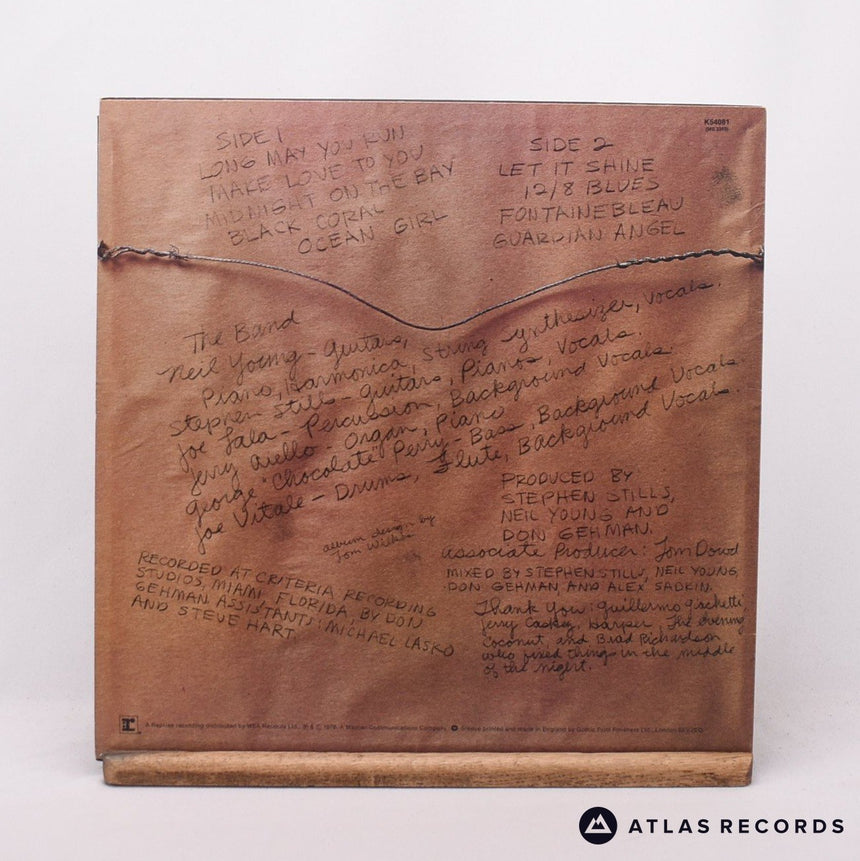 K54081
SIDE 1
LONG MAY YOU RUN
MAKE LOVE TO YOU
MIDNIGHT ON THE BAY
BLACK CORAL
OCEAN GIRL
SIDE 2
LET IT SHINE
12/8 BLUES
FONTAINEBLEAU
GUARDIAN ANGEL
The Band
Neil Young - Guitars,
Piano, Harmonica, String Synthesizer, Vocals.
Stephen Stills - Guitars, Pianos, Vocals.
Joe Lala - Percussion, Background Vocals.
Jerry Aiello - Organ, Piano
George "Chocolate" Perry - Bass, Background Vocals.
Joe Vitale - Drums, Flute, Background Vocals.
album design by
Tom Wilkes
PRODUCED BY
STEPHEN STILLS,
NEIL YOUNG AND
DON GEHMAN.
Associate Producer: Tom Dowd
MIXED BY STEPHEN STILLS, NEIL YOUNG,
DON GEHMAN AND ALEX SADKIN.
RECORDED AT CRITERIA RECORDING
STUDIOS, MIAMI FLORIDA, BY DON
GEHMAN ASSISTANTS: MICHAEL LASKO
AND STEVE HART
Thank You: Guillermo Giachetti,
Jerry Caskey, Harper, The evening
Coconut, and Brad Richardson
who fixed things in the middle
of the night.
A Reprise recording distributed by WEA Records Ltd., ℗ & © 1976. A Warner Communications Company. Sleeve printed and made in England by
ATLAS RECORDS